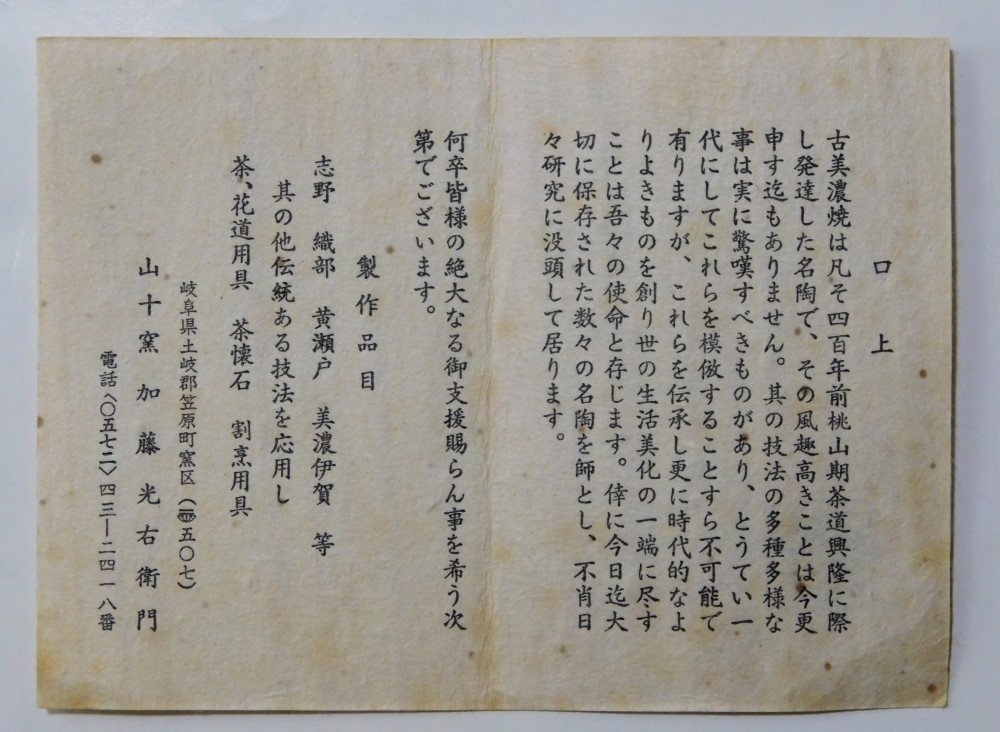 口上
古美濃焼は凡そ四百年前桃山期茶道興隆に際
し発達した名陶で、その風趣高きことは今更
申す迄もありません。其の技法の多種多様な
事は実に驚嘆すべきものがあり、とうてい一
代にしてこれらを模倣することすら不可能で
有りますが、これらを伝承し更に時代的なよ
りよきものを創り世の生活美化の一端に尽す
ことは吾々の使命と存じます。倖に今日迄大
切に保存された数々の名陶を師とし、不肖日
々研究に没頭して居ります。
何卒皆様の絶大なる御支援賜らん事を希う次
第でございます。
製作品目
志野 織部 黄瀬戸 美濃伊賀 等
其の他伝統ある技法を応用し
茶、花道用具 茶懐石 割烹用具
岐阜県土岐郡笠原町窯区(〒五〇七)
山十窯 加藤光右衛門
電話〈〇五七二〉四三―二四一八番